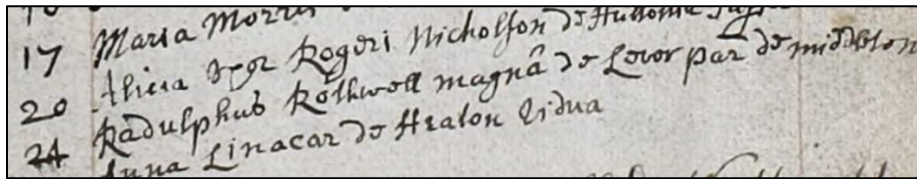 17 Maria Morris
Alicia Uxor Rogeri Nicholson de Hultonie
20 Radulphus Rothwell magnâ de Lever par de middleton
24 Anna Linacar de Heaton Vidua